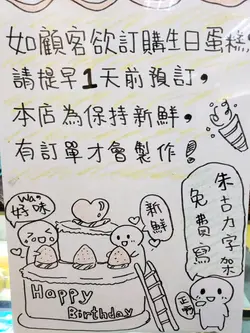 如顧客欲訂購生日蛋糕,
請提早1天前預訂,
本店為保持新鮮,
有訂單才會製作!
Wa!
好味
新鮮
朱古力字架
免費寫
正啊
Happy
Birthday